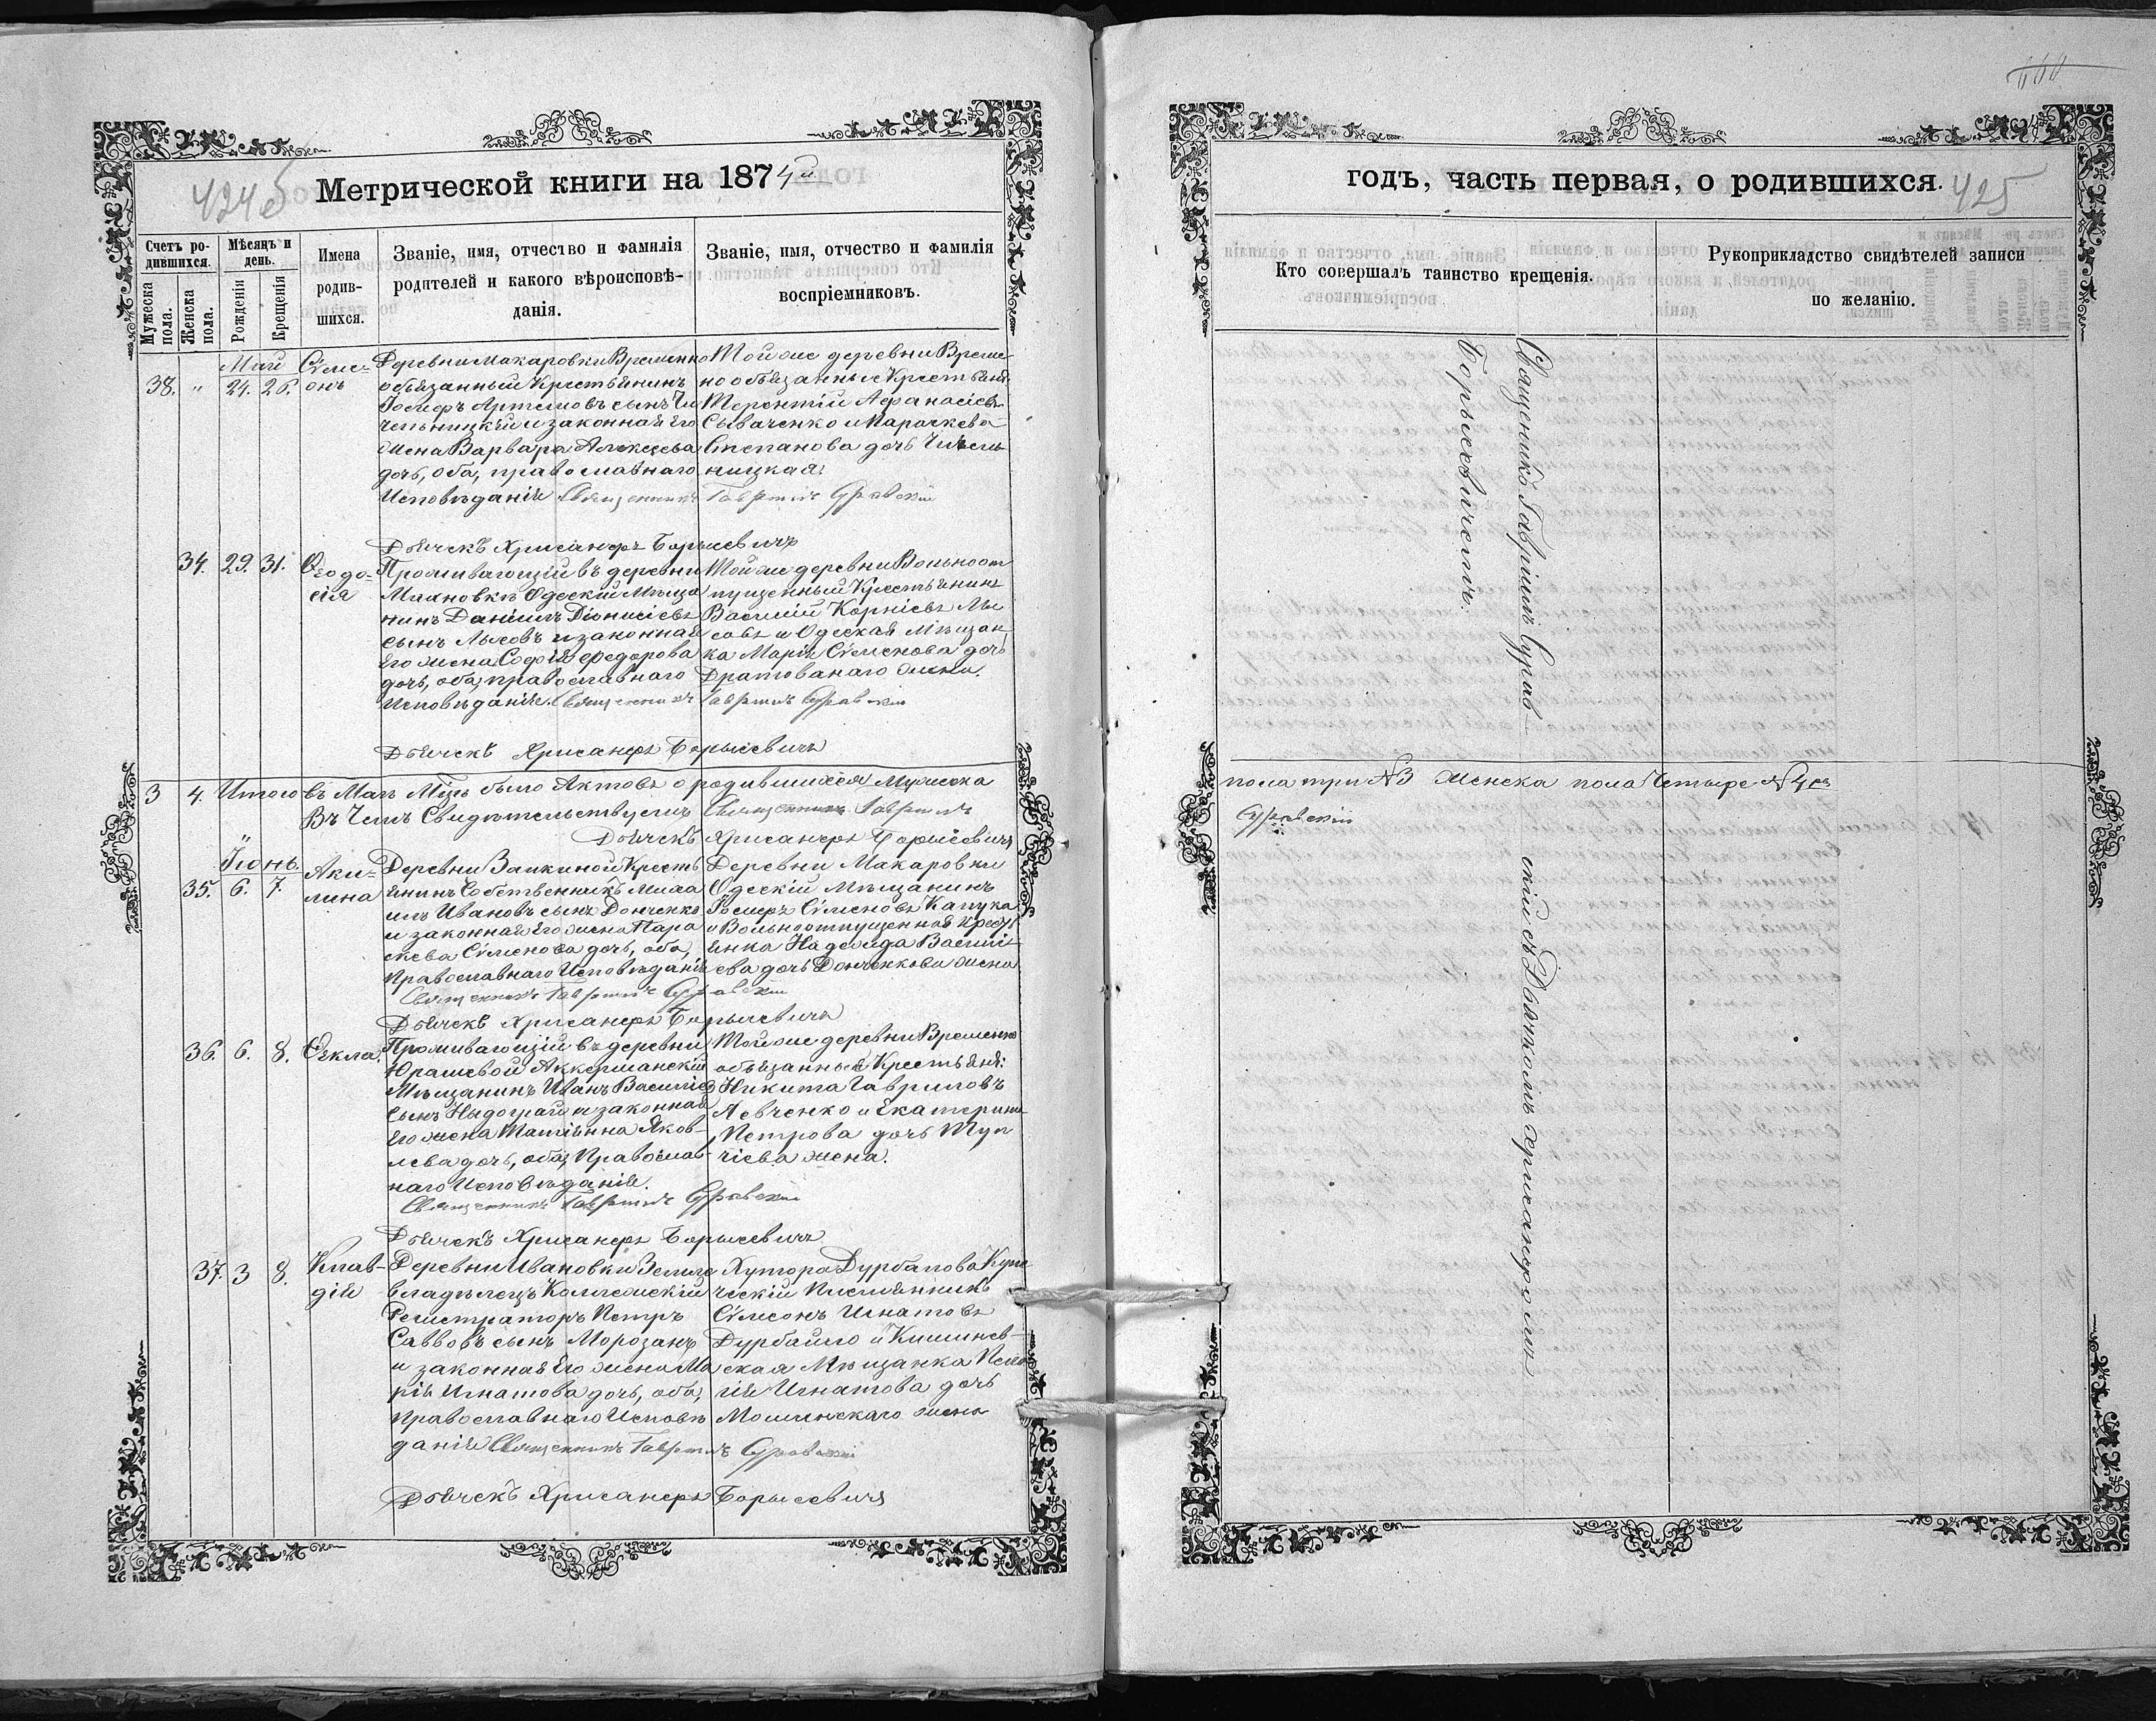 424б
Метрической книги на 1874й
Счетъ ро-
дившихся.
Мужеска
пола.
Женска
пола.
Мѣсяцъ и
день.
Рожденія
Крещенія
Имена
родив-
шихся.
Званіе, имя, отчество и фамилія
родителей и какого вѣроисповѣ-
данія.
Званіе, имя, отчество и фамилія
воспріемниковъ.
Май
38. „ 24. 26.
Сѵме-
онъ
Деревни Макаровки Временно
обязанный Крестьянинъ
Іосифъ Артемовъ сынъ Чи
чельницкій и законная его
жена Варвара Алексѣева
дочь, оба, православнаго
Исповѣданія Священникъ Гавріилъ Суравскій
Той же деревни Време-
но обязанные Крестьяне:
Терентій Афанасіевъ
Сываченко и Параскева
Степанова дочь Чичель
ницкая
Дьячекъ Хрисанфъ Борысевичъ
34. 29. 31.
Ѳеодо-
сія
Проживающій въ деревни
Миановкѣ Одескій Мѣща
нинъ Даніилъ Діонисіевъ
сынъ Лысовъ и законная
его жена Софія Федорова
дочь, оба, православнаго
Исповѣданія. Священникъ Гавріилъ Суравскій
Той же деревни Вольноот
пущенный Крестьянинъ
Василій Корніевъ Лы
совъ и Одеская Мѣщан
ка Марія Сѵменова дочь
Дратованаго жена.
Дьячекъ Хрисанфъ Борысевичъ
3 4. Итого въ Маѣ Мцѣ было Актовъ о родившихся Мужеска
Въ Чемъ Свидѣтельствуемъ Священникъ Гавріилъ
Дьячекъ Хрисанфъ Борисевичъ
„ Іюнь.
35. 6. 7.
Аки-
лина
Деревни Заикиной Кресть
янинъ Собственникъ Миха
илъ Ивановъ сынъ Донченко
и законная его жена Пара
скева Сѵменова дочь, оба,
Православнаго Исповѣданія
Священникъ Гавріилъ Суравскій
Деревни Макаровки
Одескій Мѣщанинъ
Іосифъ Сѵменовъ Капука
и Вольноотпущенная Крест
янка Надежда Василі-
ева дочь Донченкова жена
Дьячекъ Хрисанфъ Борысевичъ
36. 6. 8.
Ѳекла.
Проживающій въ деревни
Юрашевой Аккерманскій
Мѣщанинъ Иванъ Василіев
сынъ Недограй и законная
его жена Татіанна Яков-
лева дочь, оба, Православ-
наго Исповѣданія.
Священникъ Гавріилъ Суравскій
Той же деревни Временно
обязанные Крестьяне:
Никита Гавриловъ
Левченко и Екатерина
Петрова дочь Туп
чіева жена.
Дьячекъ Хрисанфъ Борысевичъ
37. 3 8.
Клав-
дія
Деревни Ивановки Земле
владѣлецъ Колежскій
Регистраторъ Петръ
Саввовъ сынъ Морозанъ
и законная его жена Ма
рія Игнатова дочь, оба,
православнаго Исповѣ
данія Священникъ Гавріилъ Суравскій
Хутора Дурбалова Купе
ческій Племянникъ
Сѵмеонъ Игнатовъ
Дурбайло и Кишинев-
ская Мѣщанка Пела
гія Игнатова дочь
Мошинскаго жена
Дьячекъ Хрисанфъ Борысевичъ
годъ, часть первая, о родившихся.
425
Кто совершалъ таинство крещенія.
Рукоприкладство свидѣтелей записи
по желанію.
Священникъ Гавріилъ Сурав-
скій съ Дьячкомъ Хрисанфомъ
Борысевичемъ.
пола три №3 Женска пола Четыре №4ре
Суравскій